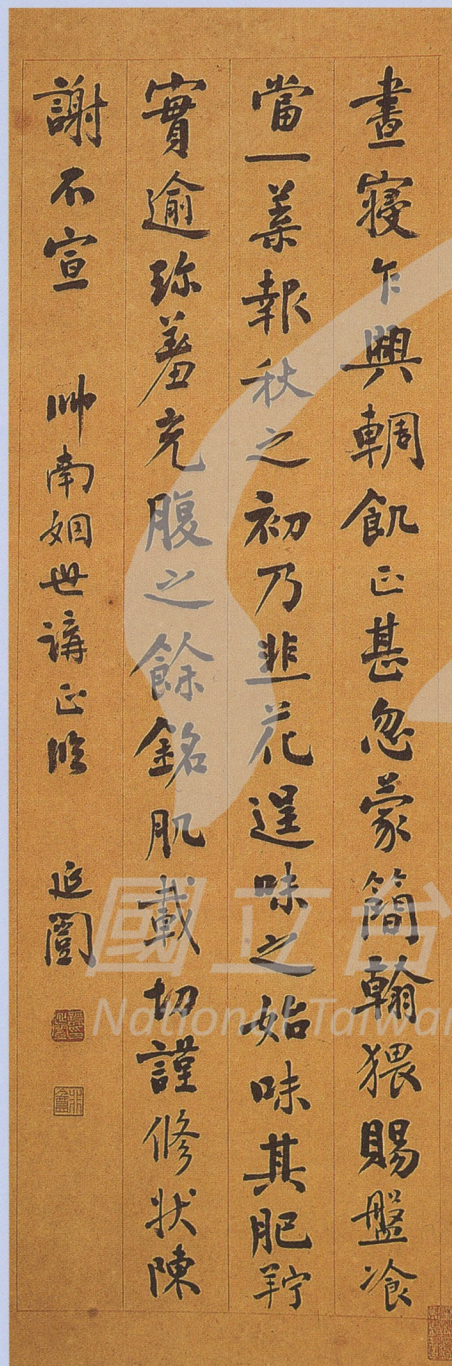 晝寝乍興輖飢正甚忽蒙簡翰猥賜盤飡
當一葉報秋之初乃韭花逞味之始味其肥羜
實逾珎羞充腹之餘銘肌載切謹修狀陳
謝不宣 帥南姻世講正臨 延闓
國立台
National Taiwa